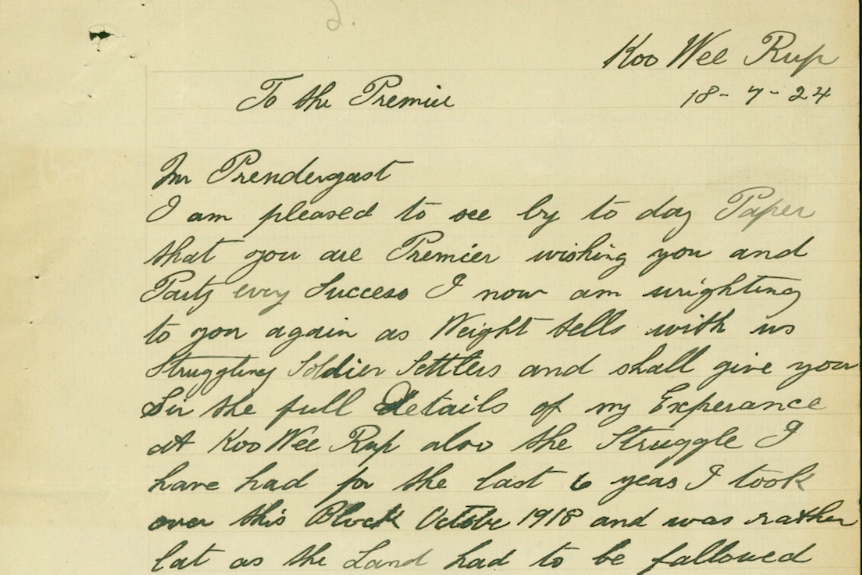 2.
Koo Wee Rup
18-7-24
To the Premier
Mr Prendergast
I am pleased to see by to day Paper
that you are Premier wishing you and
Party evry Success I now am wrighting
to you again as Weight tells with us
Struggling Soldier Settlers and shall give you
Sir the full Details of my Experance
at Koo Wee Rup also the Struggle I
have had for the last 6 years I took
over this Block October 1918 and was rather
lat as the Land had to be fallowed